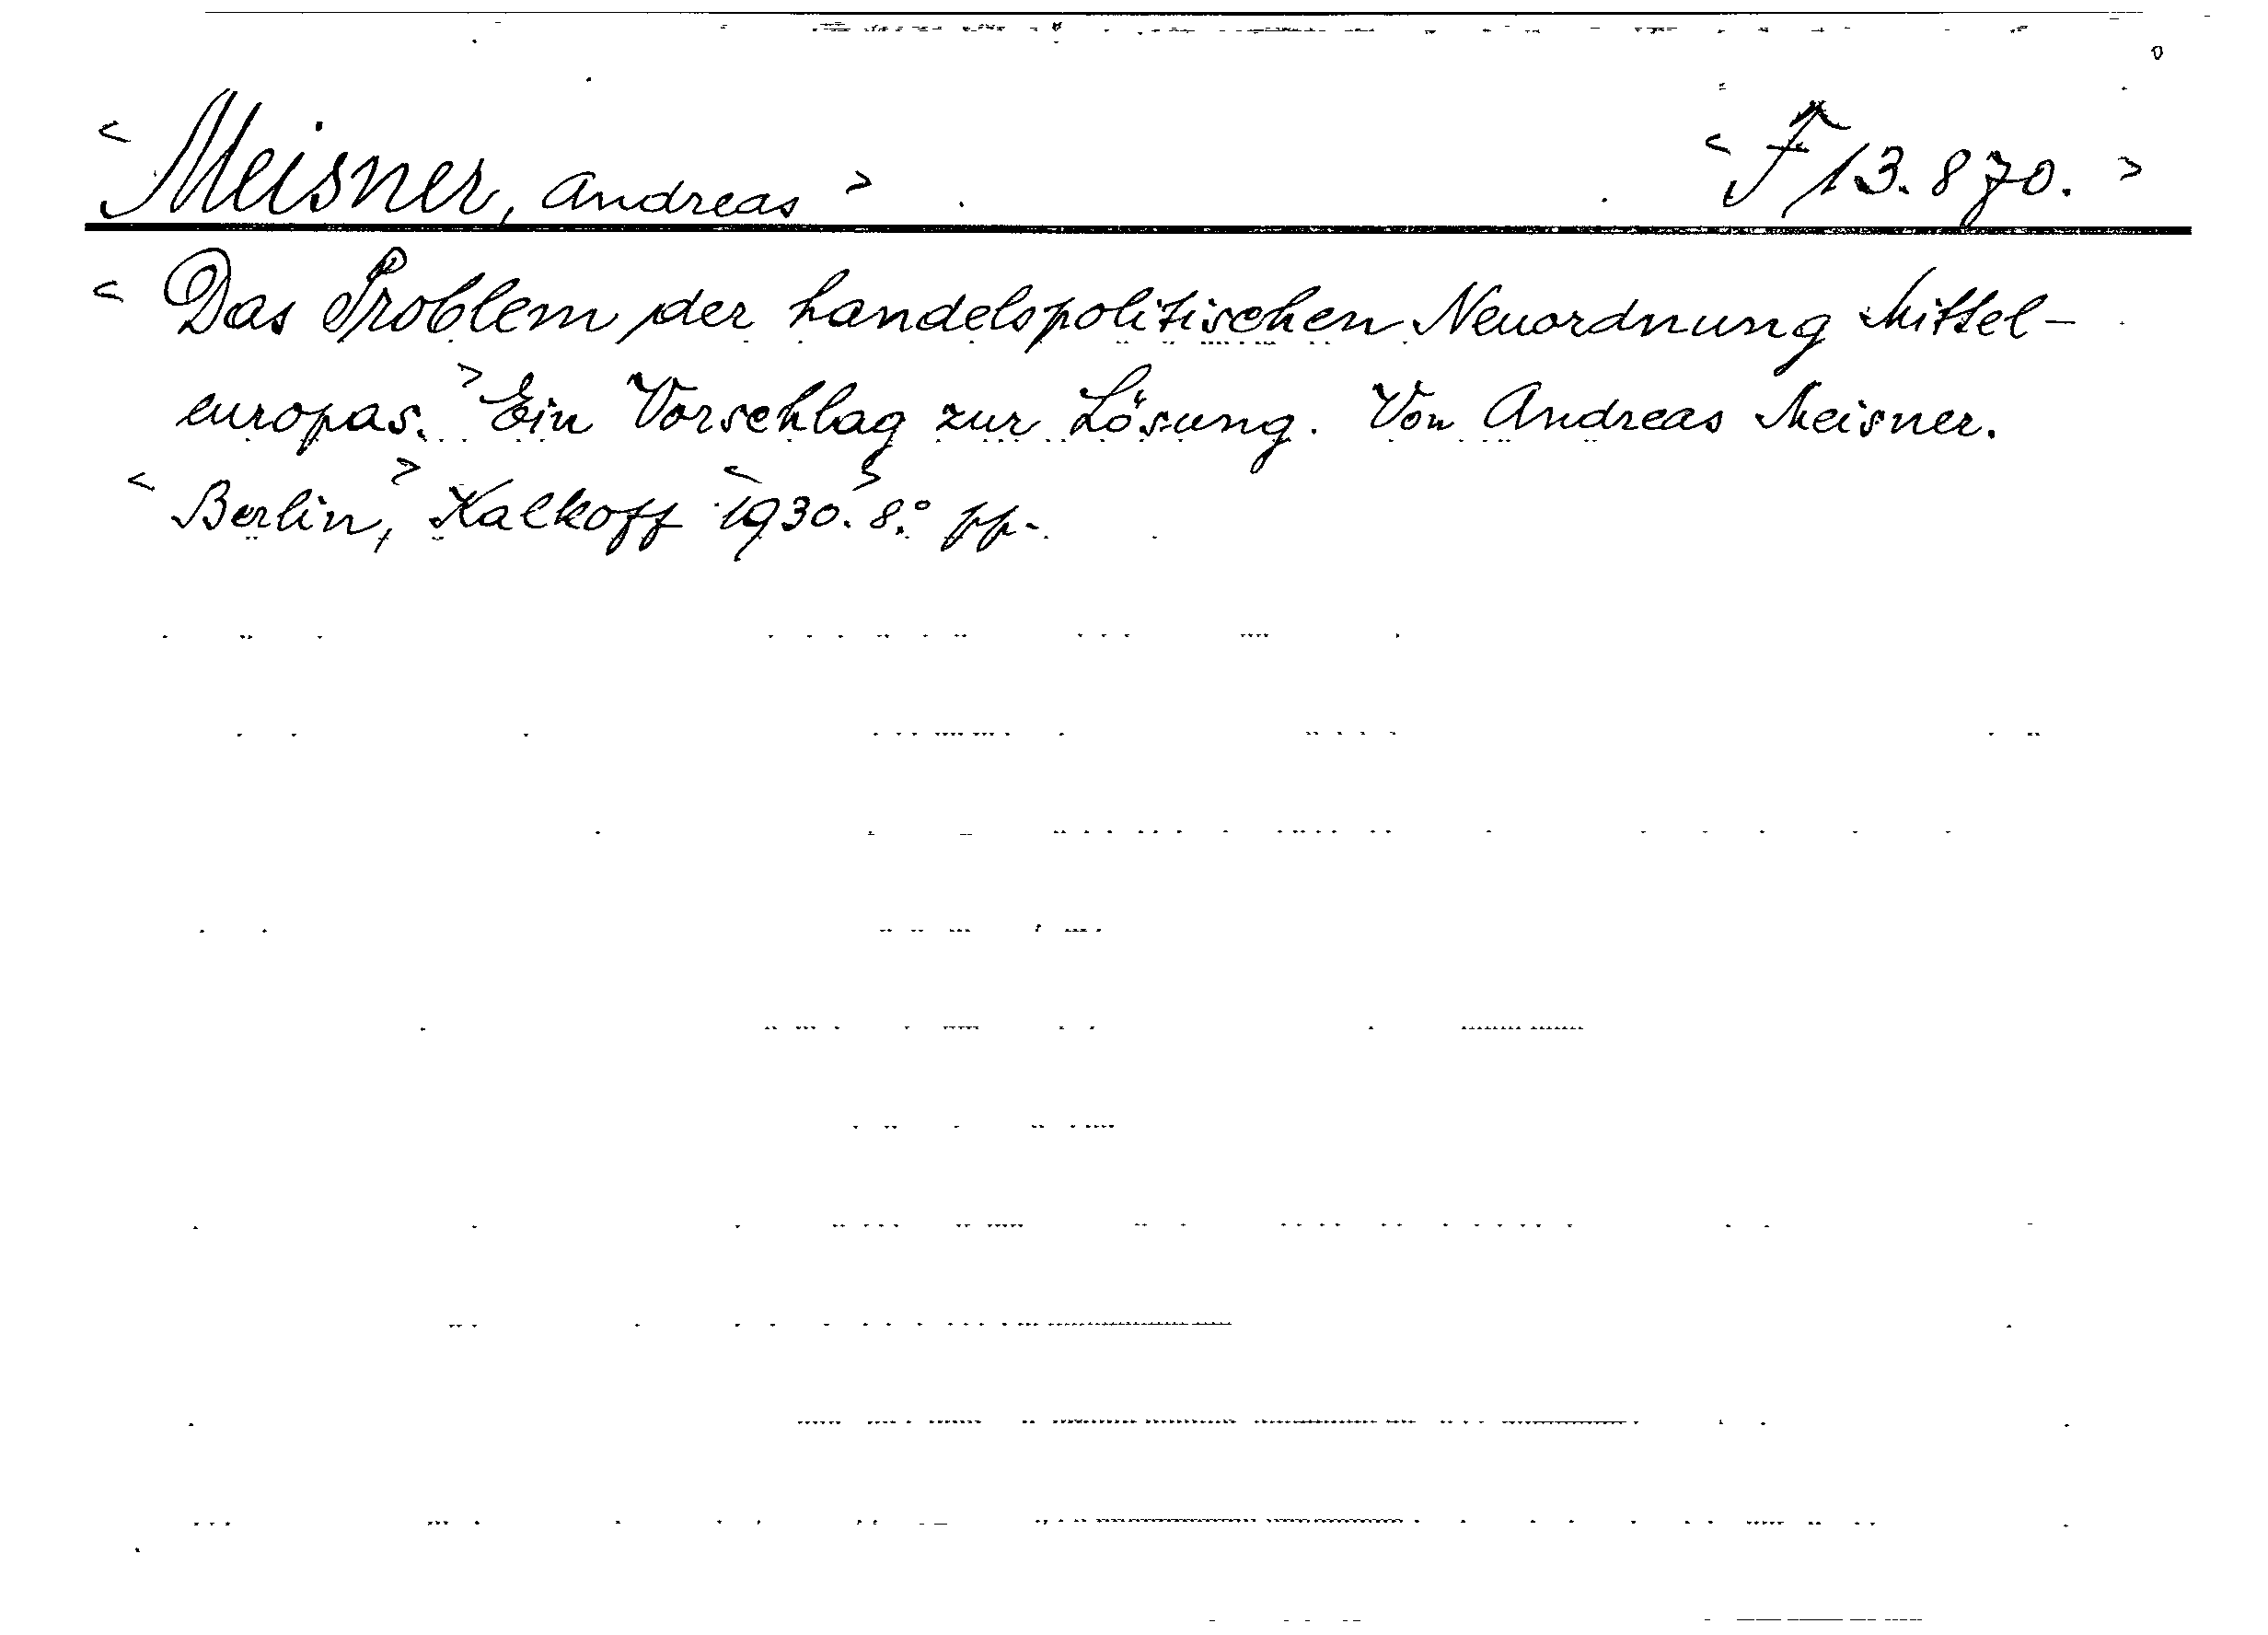 < Meisner, Andreas > < F 13.870. >
< Das Problem der handelspolitischen Neuordnung Mittel-
europas. > Ein Vorschlag zur Lösung. Von Andreas Meisner.
< Berlin, > Kalkoff < 1930. > 8.° pp.